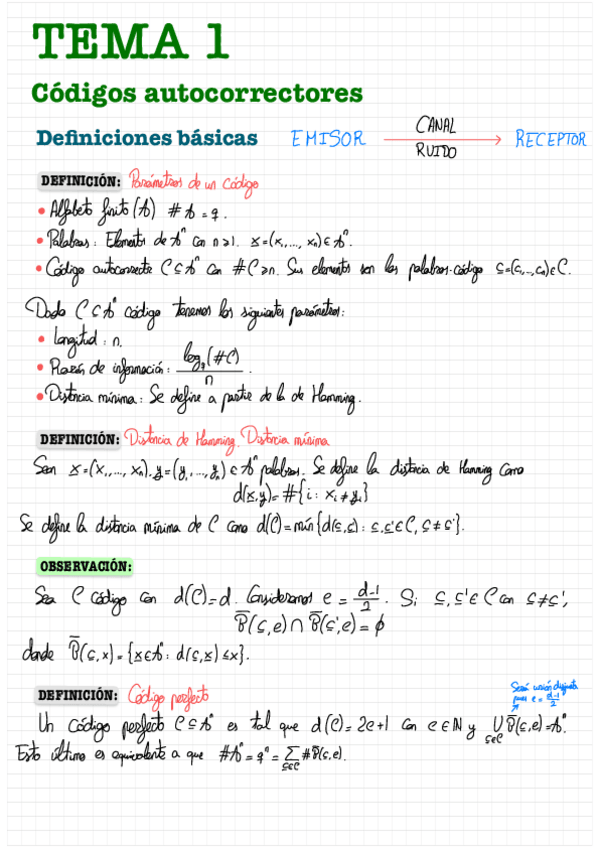 TEMA 1
Códigos autocorrectores
Definiciones básicas EMISOR CANAL RUIDO RECEPTOR
DEFINICIÓN: Parámetros de un código
• Alfabeto finito (A) #A = q.
• Palabras: Elementos de Aⁿ con n≥1. x=(x₁,...,xₙ)∈Aⁿ.
• Código autocorrector C⊆Aⁿ con #C≥n. Sus elementos son las palabras-código c=(c₁,...,cₙ)∈C.
Dado C⊆Aⁿ código tenemos los siguientes parámetros:
• Longitud: n.
• Razón de información: log_q(#C)/n.
• Distancia mínima: Se define a partir de la de Hamming.
DEFINICIÓN: Distancia de Hamming. Distancia mínima
Sean x=(x₁,...,xₙ), y=(y₁,...,yₙ)∈Aⁿ palabras. Se define la distancia de Hamming como
d(x,y)=#{i: xᵢ≠yᵢ}
Se define la distancia mínima de C como d(C)=mín{d(c,c): c,c'∈C, c≠c'}.
OBSERVACIÓN:
Sea C código con d(C)=d. Consideramos e = d-1/2. Si c,c'∈C con c≠c',
B̅(c,e)∩B̅(c',e)=∅
donde B̅(c,x)={x∈Aⁿ: d(c,x)≤x}.
DEFINICIÓN: Código perfecto
Será unión disjunta
pues e = d-1/2
Un código perfecto C⊆Aⁿ es tal que d(C)=2e+1 con e∈ℕ y ⋃_{c∈C} B̅(c,e)=Aⁿ.
Esto último es equivalente a que #Aⁿ=qⁿ=∑_{c∈C} #B̅(c,e).